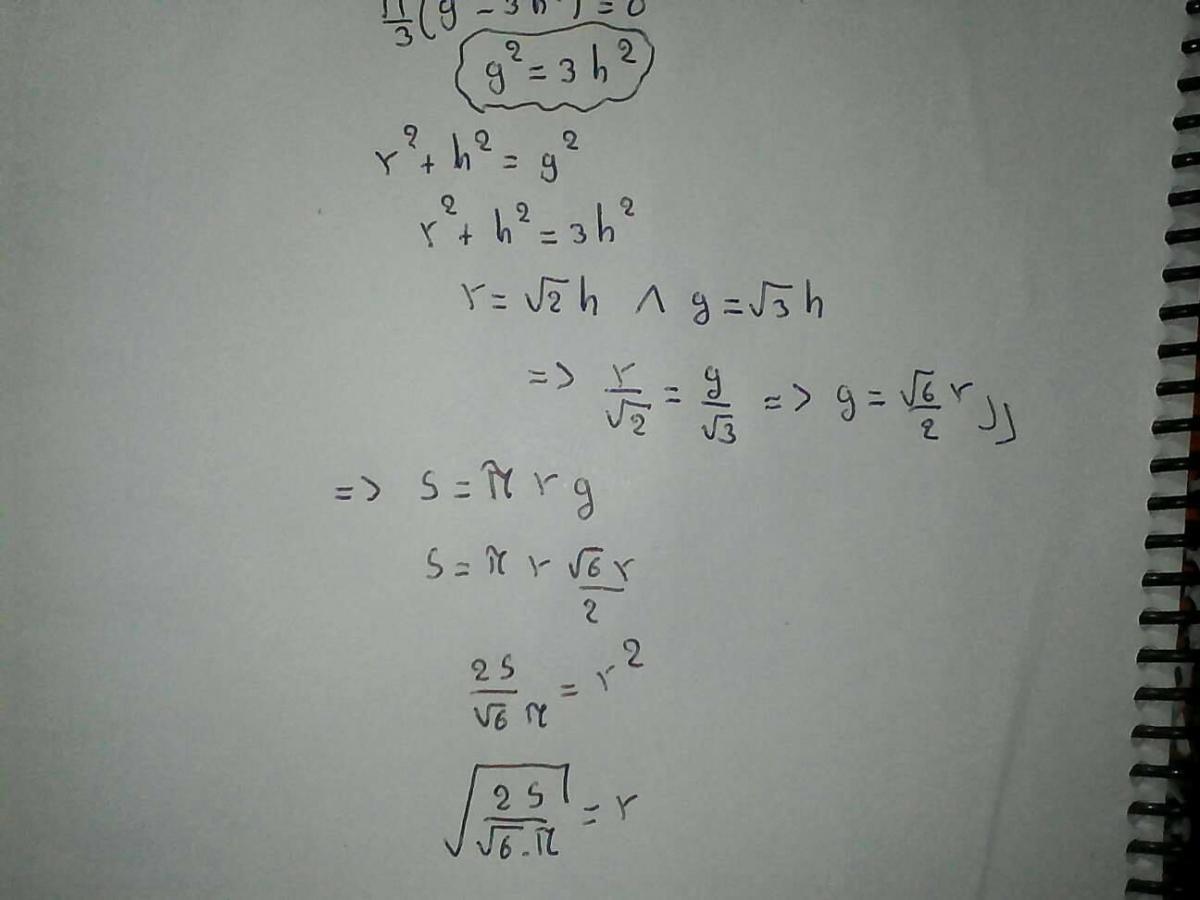 π/3 (g² - 3h²) = 0
g² = 3h²
r² + h² = g²
r² + h² = 3h²
r = √2 h ∧ g = √3 h
=> r/√2 = g/√3 => g = √6/2 r //
=> S = π r g
S = π r √6 r/2
2S/√6 π = r²
√(2S/√6 . π) = r